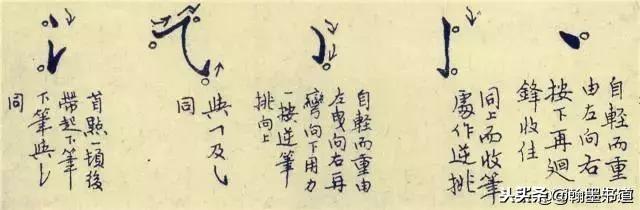 自輕而重
由左向右
按下再廻
鋒收住
同上而收筆
處作逆挑
自輕而重由
左曳向右再
彎向下用力
一按逆筆
挑向上
與㇀及乀
同
首點一頓後
帶起下筆
下筆與乚
同
头条@翰墨知道